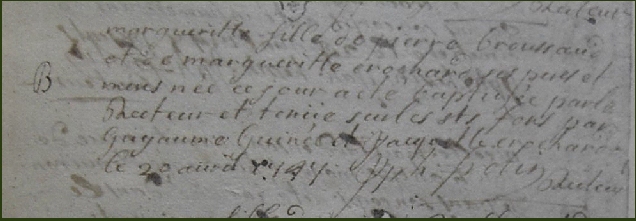 Recteur
margueritte fille de pierre broussaud
et de margueritte erochard ses pere et
B mere nee ce jour a ete baptisée par le
Recteur et tenüe sur les sts fons par
Guyaume Guiné et Jacquette erochard
le 20 avril
Recteur
fille de